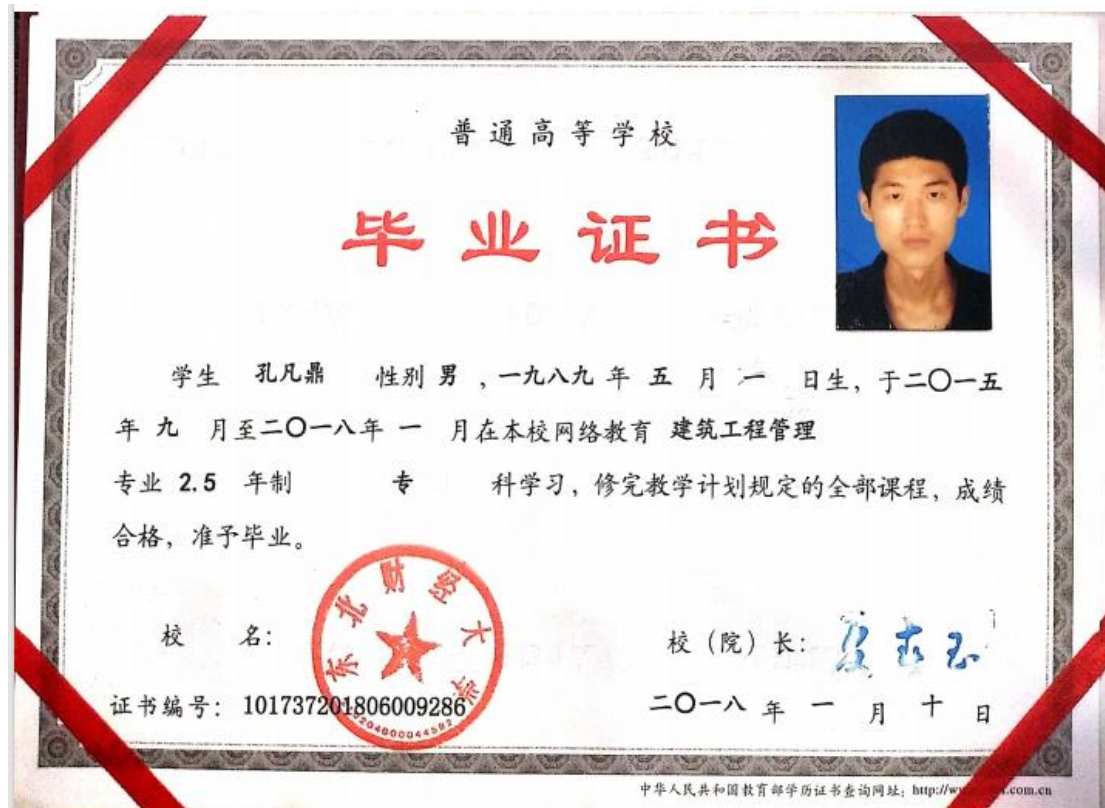 普通高等学校
毕业证书
学生 孔凡鼎 性别 男 , 一九八九 年 五 月 一 日生, 于二〇一五
年 九 月至二〇一八年 一 月在本校网络教育 建筑工程管理
专业 2.5 年制 专 科学习, 修完教学计划规定的全部课程, 成绩
合格, 准予毕业。
东北财经大学
校 名:
校（院）长:
证书编号: 101737201806009286
二〇一八 年 一 月 十 日
中华人民共和国教育部学历证书查询网址: http://www.com.cn